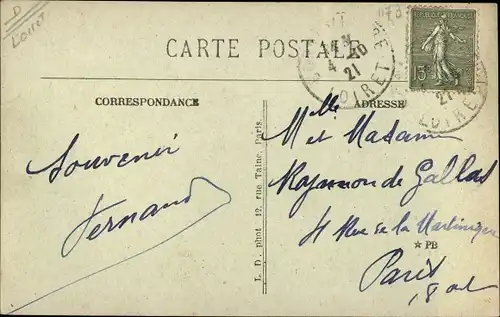 D
Loiret
CARTE POSTALE
REPUBLIQUE FRANÇAISE
15
4
21
LOIRET
CORRESPONDANCE
ADRESSE
LOIRET
21
Souvenir
Fernand
Mlle et Madame
de Gallas
41 Rue de la Martinique
Paris
18
* PB
L. D. phot 12, rue Taine, Paris